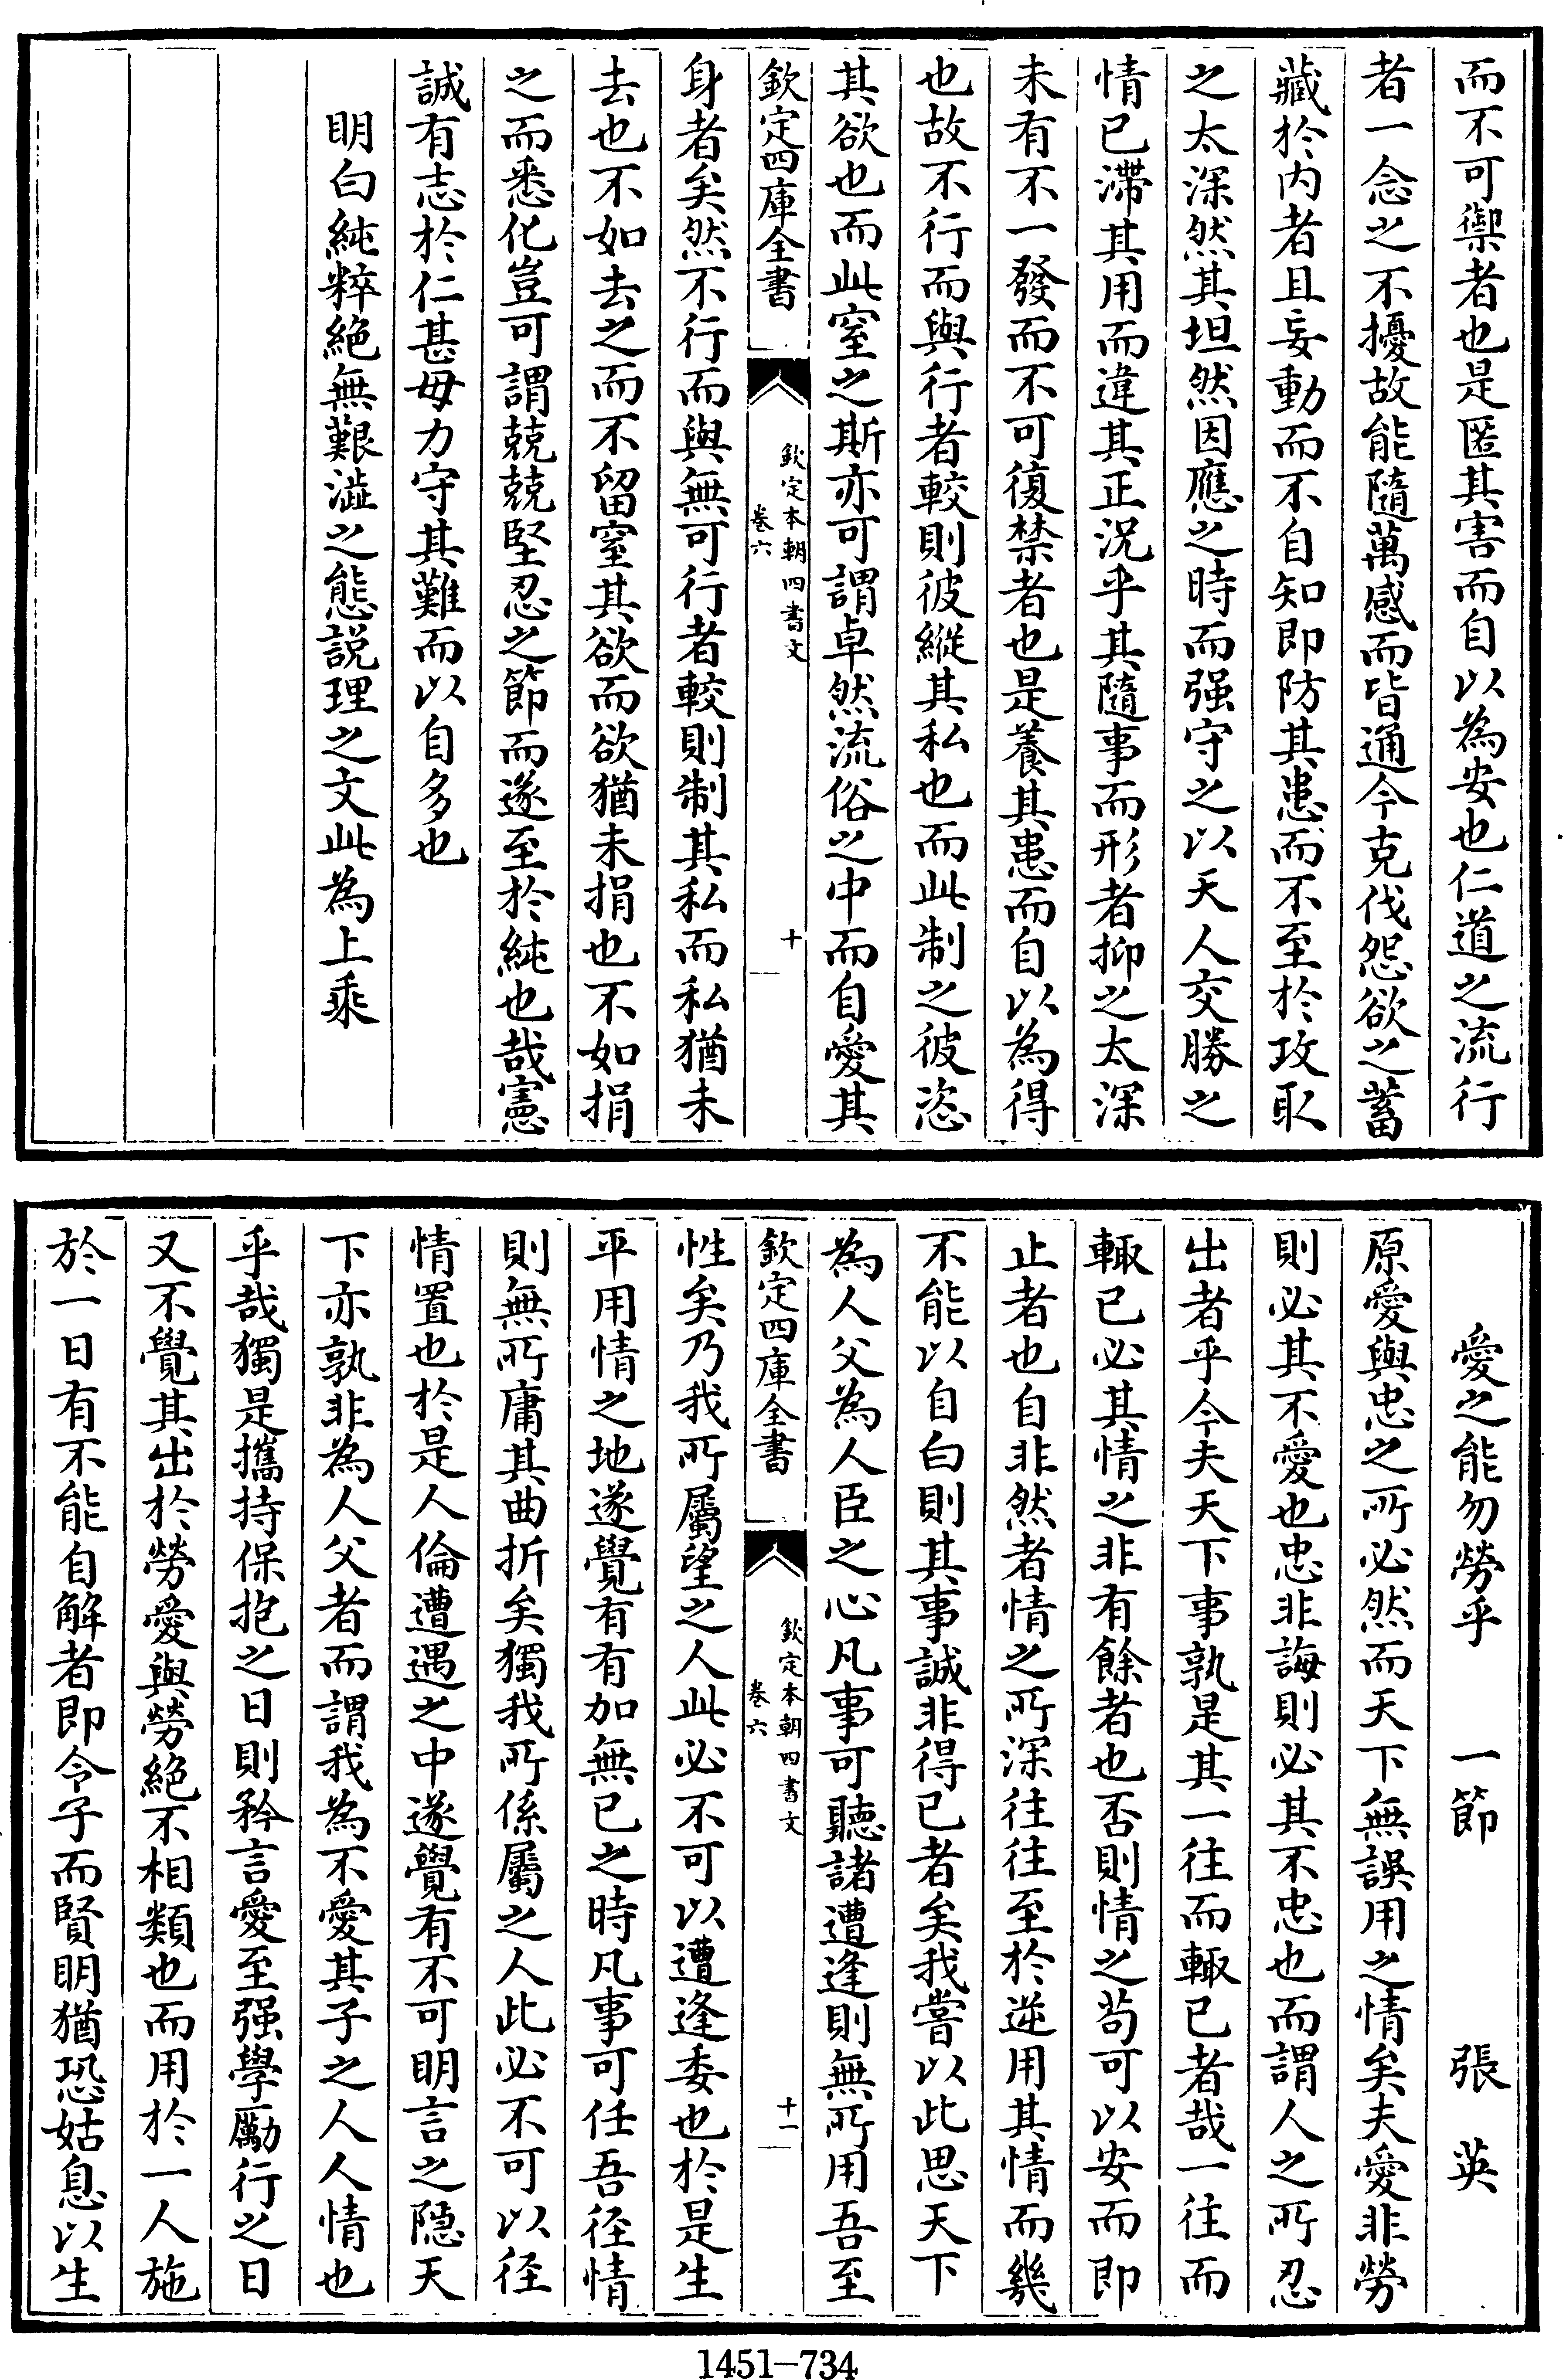 而不可禦者也是匿其害而自以為安也仁道之流行
者一念之不擾故能隨萬感而皆通今克伐怨欲之蓄
藏於内者且妄動而不自知即防其患而不至於攻取
之太深然其坦然因應之時而强守之以天人交勝之
情已滯其用而違其正况乎其隨事而形者抑之太深
未有不一發而不可復禁者也是養其患而自以為得
也故不行而與行者較則彼縱其私也而此制之彼恣
其欲也而此窒之斯亦可謂卓然流俗之中而自愛其
欽定四庫全書
欽定本朝四書文
卷六
十
身者矣然不行而與無可行者較則制其私而私猶未
去也不如去之而不留窒其欲而欲猶未捐也不如捐
之而悉化豈可謂兢兢堅忍之節而遂至於純也哉憲
誠有志於仁甚毋力守其難而以自多也
明白純粹絶無艱澁之態説理之文此為上乘
愛之能勿勞乎 一節 張英
原愛與忠之所必然而天下無誤用之情矣夫愛非勞
則必其不愛也忠非誨則必其不忠也而謂人之所忍
出者乎今夫天下事孰是其一往而輙已者哉一往而
輙已必其情之非有餘者也否則情之苟可以安而即
止者也自非然者情之所深往往至於逆用其情而幾
不能以自白則其事誠非得已者矣我嘗以此思天下
為人父為人臣之心凡事可聽諸遭逢則無所用吾至
欽定四庫全書
欽定本朝四書文
卷六
十一
性矣乃我所屬望之人此必不可以遭逢委也於是生
平用情之地遂覺有有加無已之時凡事可任吾徑情
則無所庸其曲折矣獨我所係屬之人此必不可以徑
情置也於是人倫遭遇之中遂覺有不可明言之隱天
下亦孰非為人父者而謂我為不愛其子之人人情也
乎哉獨是攜持保抱之日則矜言愛至强學勵行之日
又不覺其出於勞愛與勞絶不相類也而用於一人施
於一日有不能自解者即令子而賢明猶恐姑息以生
1451-734